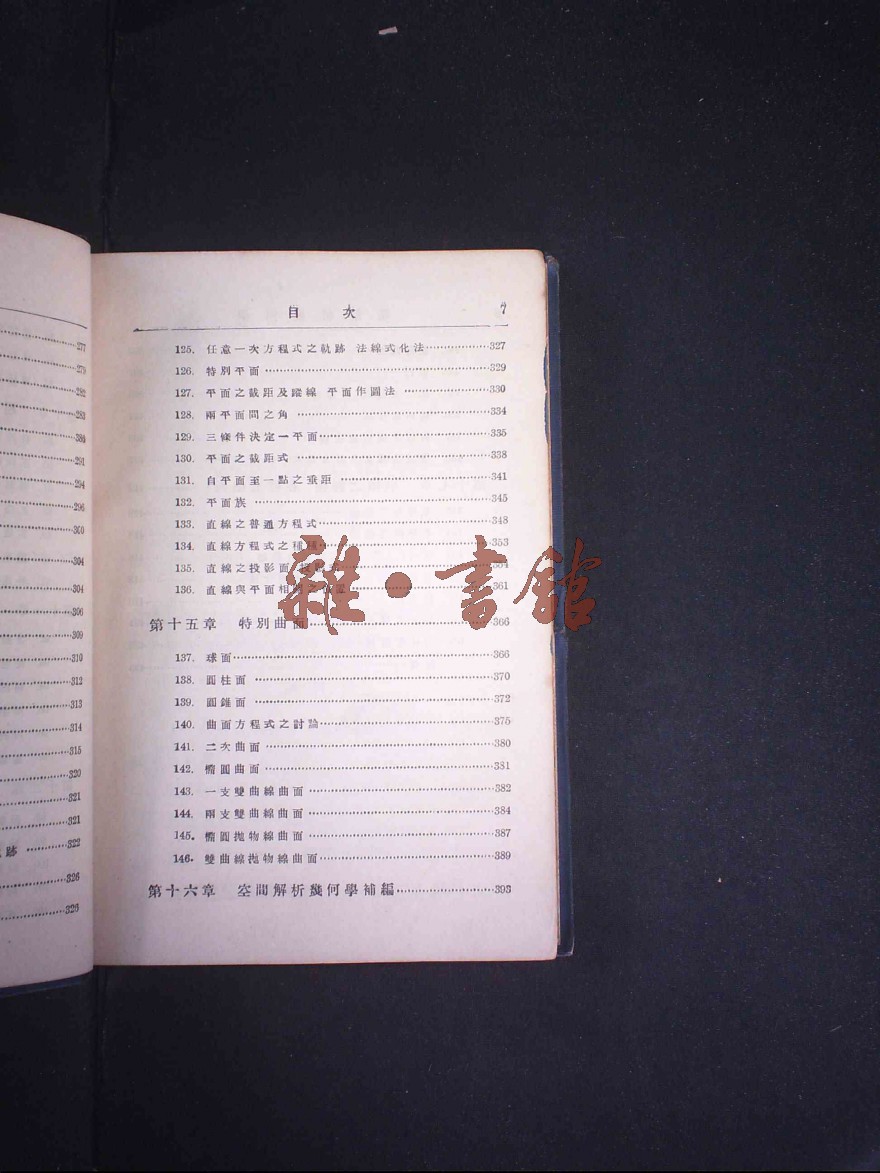 277
279
282
283
286
291
294
296
300
304
304
306
309
310
312
313
314
315
320
321
321
跡 322
326
326
目 次 7
125. 任意一次方程式之軌跡 法線式化法 327
126. 特別平面 329
127. 平面之截距及蹤線 平面作圖法 330
128. 兩平面間之角 334
129. 三條件決定一平面 335
130. 平面之截距式 338
131. 自平面至一點之垂距 341
132. 平面族 345
133. 直線之普通方程式 348
134. 直線方程式之種種 353
135. 直線之投影面 354
136. 直線與平面相關之位置 361
第十五章 特別曲面 366
137. 球面 366
138. 圓柱面 370
139. 圓錐面 372
140. 曲面方程式之討論 375
141. 二次曲面 380
142. 橢圓曲面 381
143. 一支雙曲線曲面 382
144. 兩支雙曲線曲面 384
145. 橢圓拋物線曲面 387
146. 雙曲線拋物線曲面 389
第十六章 空間解析幾何學補編 393
雜·書館